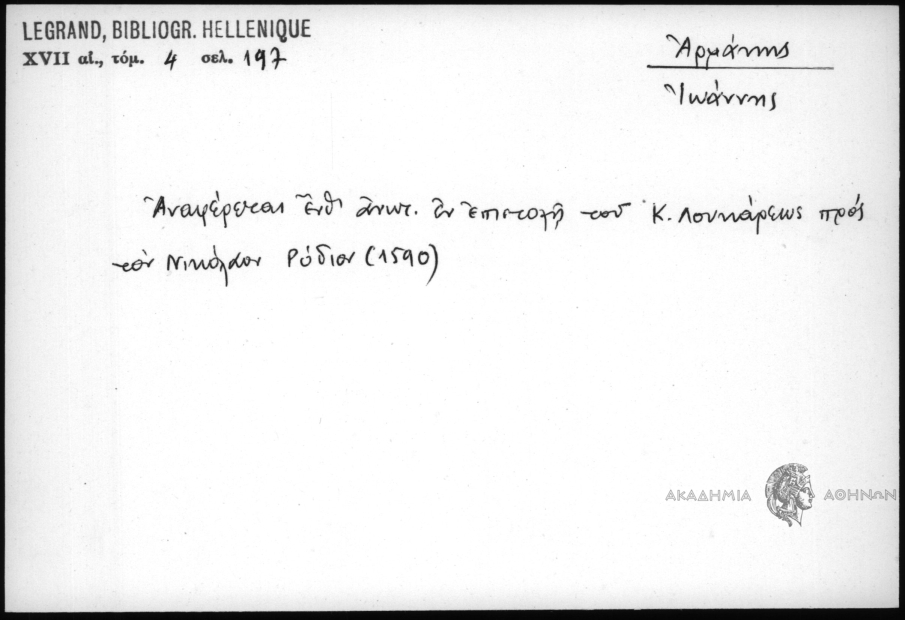 LEGRAND, BIBLIOGR. HELLENIQUE
XVII αἰ., τόμ. 4 σελ. 197
Ἀρμάνης
Ἰωάννης
Ἀναφέρεται ἔνθ' ἄνωτ. ἐν ἐπιστολῇ τοῦ Κ. Λουκάρεως πρός
τόν Νικόλαον Ρόδιον (1590)
ΑΚΑΔΗΜΙΑ ΑΘΗΝΩΝ